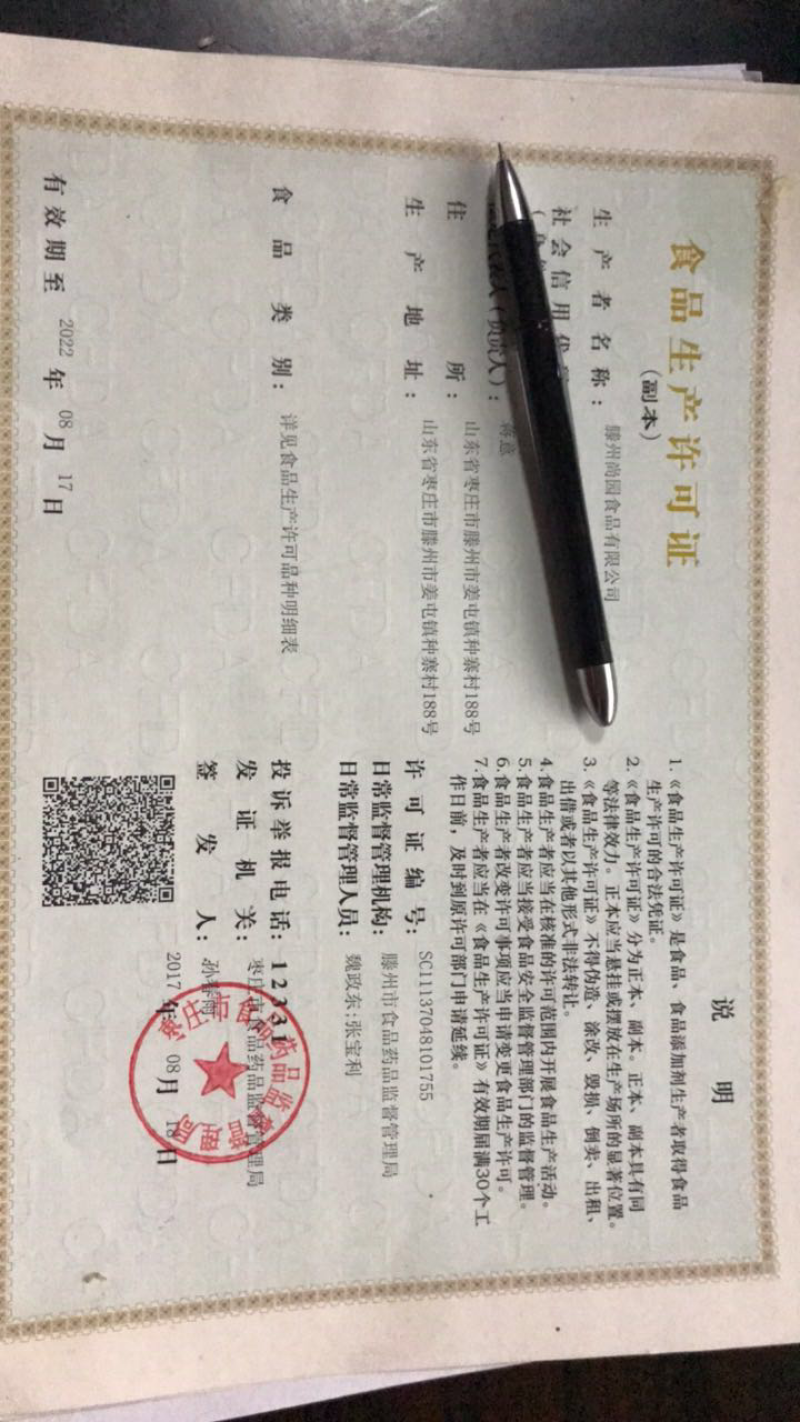 食品生产许可证
(副本)
生产者名称：滕州尚园食品有限公司
社会信用代
人(负责人)：蒋意
住所：山东省枣庄市滕州市姜屯镇种寨村188号
生产地址：山东省枣庄市滕州市姜屯镇种寨村188号
食品类别：详见食品生产许可品种明细表
有效期至 2022 年 08 月 17 日
说明
1.《食品生产许可证》是食品、食品添加剂生产者取得食品
生产许可的合法凭证。
2.《食品生产许可证》分为正本、副本。正本、副本具有同
等法律效力。正本应当悬挂或摆放在生产场所的显著位置。
3.《食品生产许可证》不得伪造、涂改、毁损、倒卖、出租、
出借或者以其他形式非法转让。
4.食品生产者应当在核准的许可范围内开展食品生产活动。
5.食品生产者应当接受食品安全监督管理部门的监督管理。
6.食品生产者改变许可事项应当申请变更食品生产许可。
7.食品生产者应当在《食品生产许可证》有效期届满30个工
作日前，及时到原许可部门申请延续。
许可证编号：SC11137048101755
日常监督管理机构：滕州市食品药品监督管理局
日常监督管理人员：魏政东;张宝利
投诉举报电话：12331
发证机关：枣庄市食品药品监督管理局
签发人：孙春雨
2017 年 08 月 日
枣庄市食品药品监督管理局